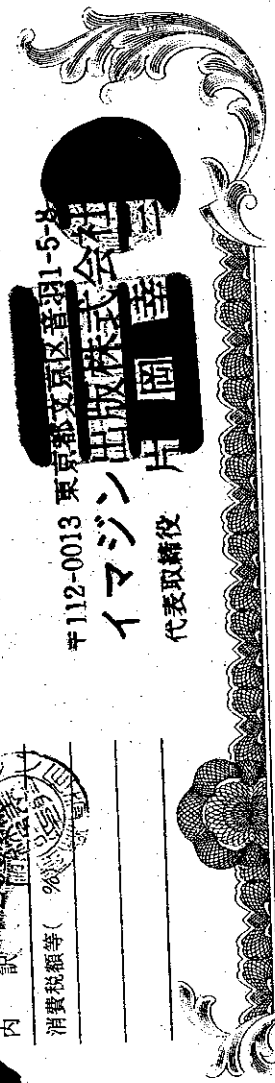 内訳
消費税額等( %)
〒112-0013 東京都文京区音羽1-5-8
イマジン出版株式会社
代表取締役 片岡幸三